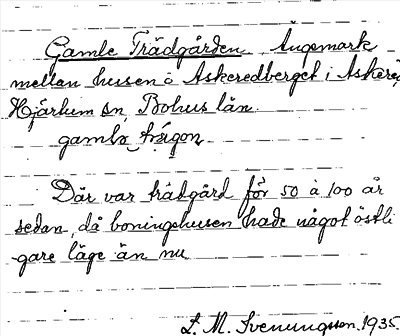 Gamle Trädgården, Ängsmark
mellan husen å Askeredberget i Askered
Hjärtum sn, Bohus län.
gamlə trägɔn
Där var trädgård för 50 à 100 år
sedan, då boningshusen hade något östli
gare läge än nu
L. M. Svenungsson. 1935.